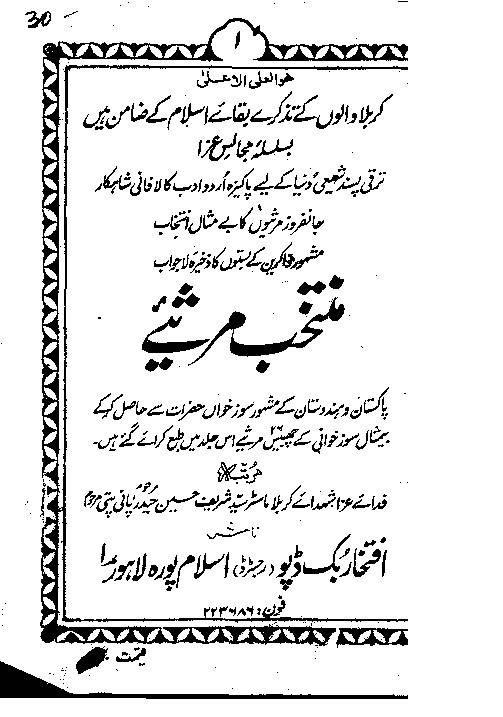 30
۱
ھوالعلی الاعلیٰ
کربلا والوں کے تذکرے بقائے اسلام کے ضامن ہیں
بسلسلہ مجالسِ عزا
ترقی پسند شیعی دُنیا کے لیے پاکیزہ اُردو ادب کا لافانی شاہکار
جانفروز مرثیوں کا بے مثال انتخاب
مشہور ذاکرین کے بستوں کا ذخیرہ لاجواب
منتخب مرثیے
پاکستان و ہندوستان کے مشہور سوز خواں حضرات سے حاصل کرکے
بیمثال سوز خوانی کے چھبیس ۲۶ مرثیے اس جلد میں طبع کرائے گئے ہیں۔
مرتبہ
فدائے عزا شہدائے کربلا ماسٹر سید شریف حسین حیدر پانی پتی مرحوم
ناشر
افتخار بک ڈپو (رجسٹرڈ) اسلام پورہ لاہور ۱
فون: ۲۲۳۶۸۶
قیمت